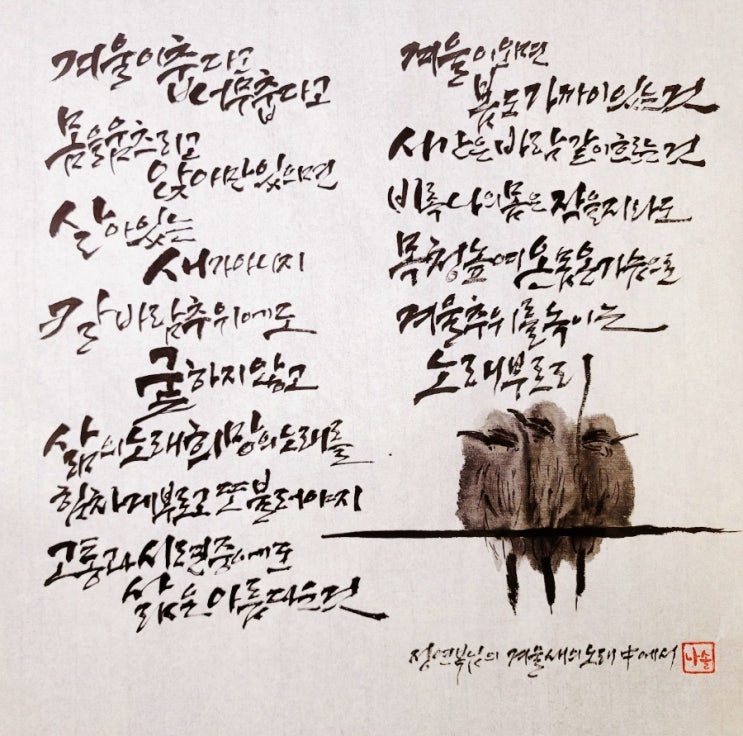 겨울이 춥다고
너무 춥다고
몸을 움츠리고
앉아만 있으면
살아있는
새가 아니지
칼바람 추위에도
굴하지 않고
삶의 노래 희망의 노래를
힘차게 부르고 또 불러야지
고통과 시련 중에도
삶은 아름다운 것
겨울이 오면
봄도 가까이 있는 것
시간은 바람같이 흐르는 것
비록 나의 몸은 작을지라도
목청 높여 온 몸 온 가슴으로
겨울 추위를 녹이는
노래 부르리
정연복님의 겨울새의 노래 中에서
나솔